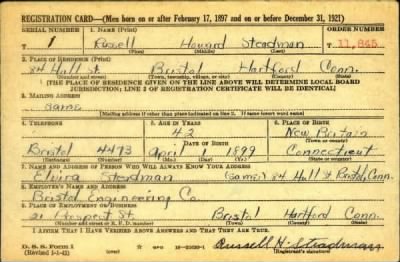 REGISTRATION CARD—(Men born on or after February 17, 1897 and on or before December 31, 1921)
SERIAL NUMBER 1. NAME (Print) ORDER NUMBER
T 1 Russell Howard Steadman T 11,845
(First) (Middle) (Last)
2. PLACE OF RESIDENCE (Print)
84 Hall St Bristol Hartford Conn.
(Number and street) (Town, township, village, or city) (County) (State)
[THE PLACE OF RESIDENCE GIVEN ON THE LINE ABOVE WILL DETERMINE LOCAL BOARD
JURISDICTION; LINE 2 OF REGISTRATION CERTIFICATE WILL BE IDENTICAL]
3. MAILING ADDRESS
Same
[Mailing address if other than place indicated on line 2. If same insert word same]
4. TELEPHONE 5. AGE IN YEARS 6. PLACE OF BIRTH
42 New Britain
DATE OF BIRTH (Town or county)
Bristol 4473 April 1 1899 Connecticut
(Exchange) (Number) (Mo.) (Day) (Yr.) (State or country)
7. NAME AND ADDRESS OF PERSON WHO WILL ALWAYS KNOW YOUR ADDRESS
Elvira Steadman (Same) 84 Hall St Bristol, Conn.
8. EMPLOYER'S NAME AND ADDRESS
Bristol Engineering Co
9. PLACE OF EMPLOYMENT OR BUSINESS
21 Prospect St. Bristol Hartford Conn.
(Number and street or R. F. D. number) (Town) (County) (State)
I AFFIRM THAT I HAVE VERIFIED ABOVE ANSWERS AND THAT THEY ARE TRUE.
D. S. S. Form 1
(Revised 1-1-42) (over) GPO Russell H. Steadman
(Registrant's signature)